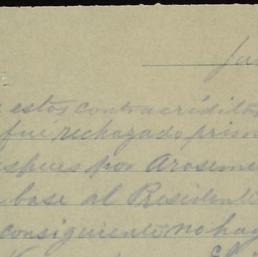 estos contracréditos
fué rechazado prim
espues por Aroseme
base al Presidente
consiguiente no hag